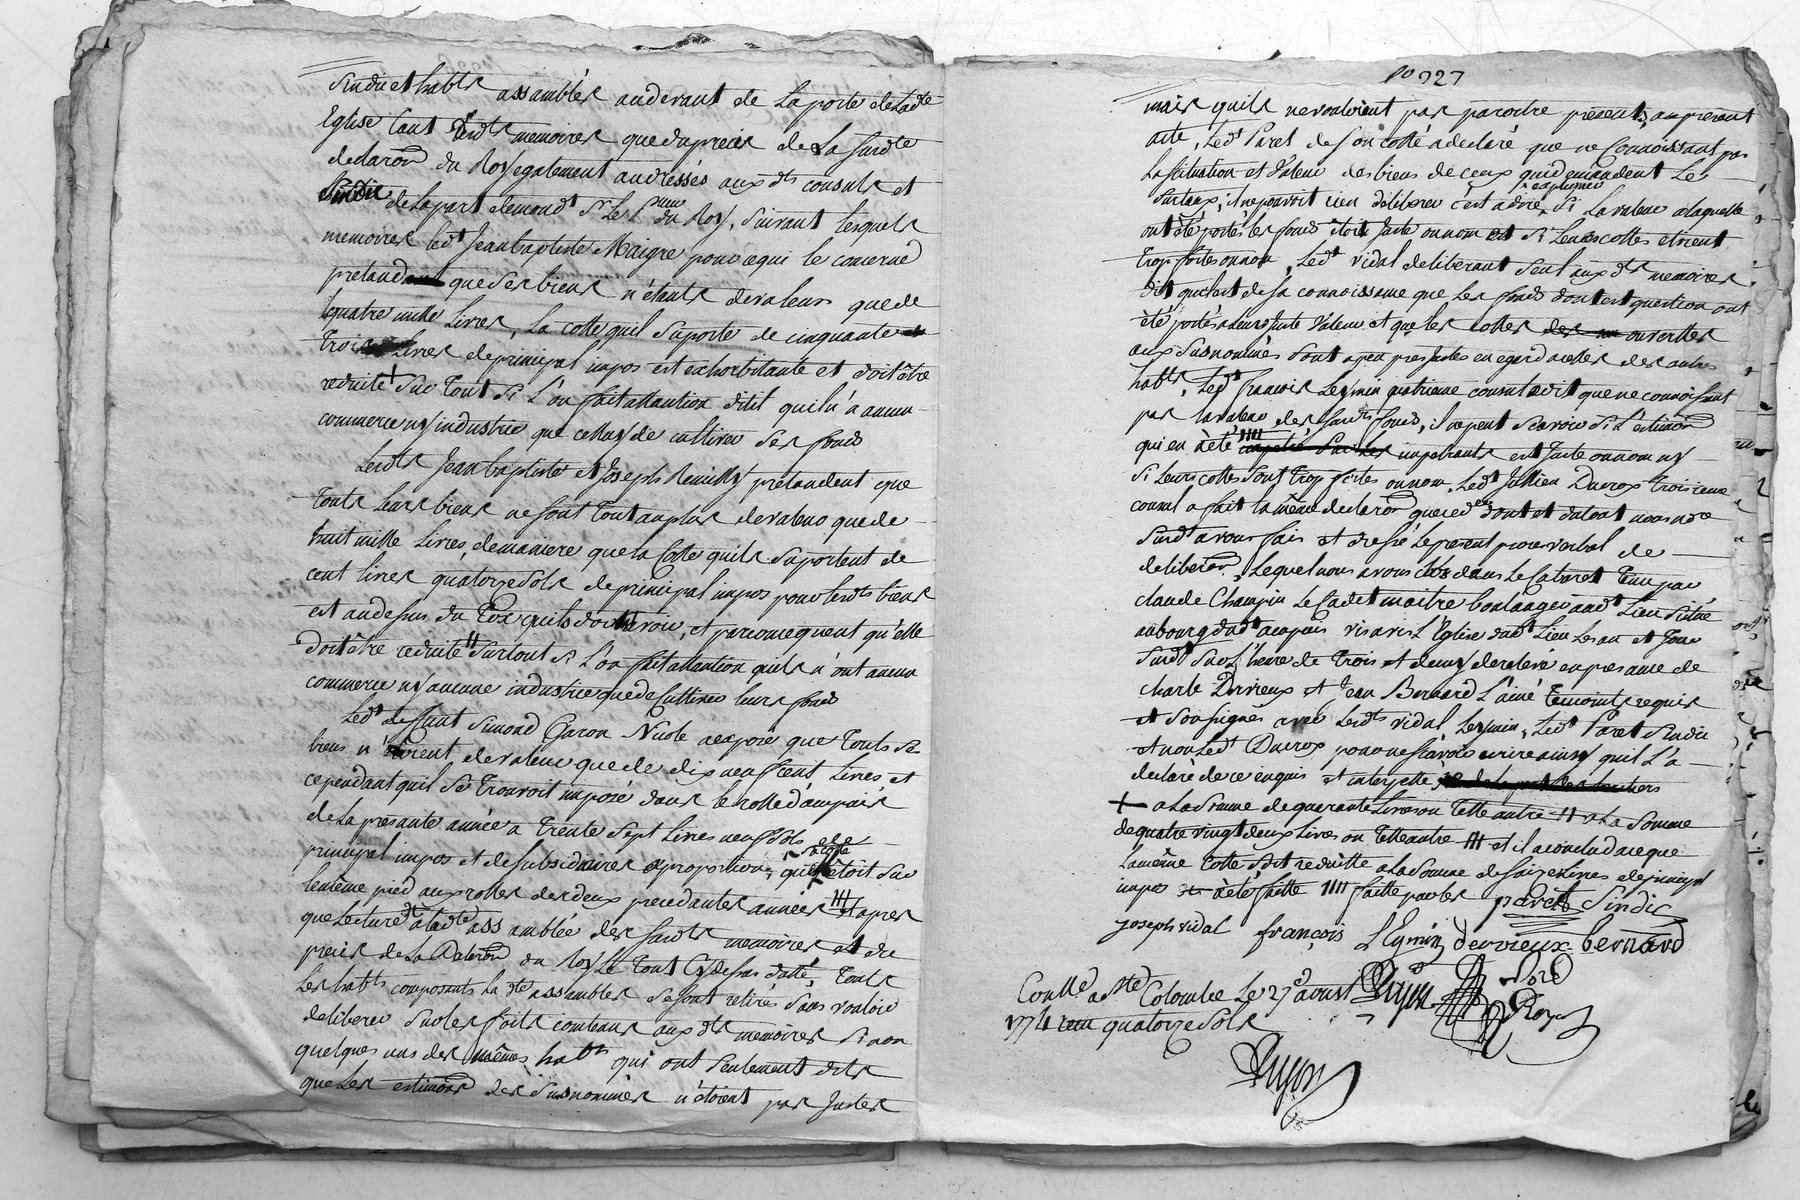 Sindic et habts assamblés audevant de La porte deLade
Eglise tant desdts memoires que du precis de La susde
declaraon du Roy egalement addressés aux dts consuls et
Sindic delapart demondt Sr Le Pneur du Roy, Suivant lesquels
memoires ledt Jean baptiste Maigre pour cequi le concerne
pretand que Ses biens n'étants devaleur que de
quatre mille Livres, La cotte quil Suporte de cinquante
trois Livres deprincipal impos est exhorbitante et doit être
reduite + Sur tout Si L'on fait attantion ditil quil n'a aucun
commerce ny industrie que celle de cultiver Ses fonds
Lesdts Jean baptiste et Joseph Remilly pretandent que
touts leurs biens ne sont tout au plus devaleur que de
huit mille Livres, demaniere que la Cotte quils Suportent de
cent livres quatorze Sols de principal impos pour lesdts biens
est audessus du et parconcequent qu'elle
doit être reduite # Surtout Si L'on fait attantion quils n'ont aucun
commerce ny aucune industrie que de Cultiver leurs fonds
Ledt Simond Garon Nicole a exposé que touts Ses
biens n'étoient devaleur que de dix neuf cent Livres et
cependant quil Se trouvoit imposé dans le rolle d'ampuis
de La présante année a trente Sept Livres neuf Sols de
principal impos et desubsidiaires a proportion, qui étoit Sur
lemême pied aux rolles des deux precedantes années #| et apres
que Lecture a lade assamblée des susdts memoires et du
precis de La Declaraon du Roy Le tout Cy dessus datté, touts
Les habts composants la de assamblée Se sont retirés Sans vouloir
deliberer Sur les faits contenus aux dts memoires Sinon
quelques uns des mêmes habts qui ont Seulement dits
que Les estimaons des Susnommés n'étoient pas Justes
po 327
mais quils ne vouloient pas paroitre présents, au present
acte, Ledt Paret de Son cotté a declaré que ne Connoissant pas
La Situation et Valeur des biens de ceux qui demandent Le
Surtaux, il ne pouvoit rien deliberer c'est adire expliquer Si La valeur a laquelle
ont été portés les fonds étoit Juste ou non et Si Leurs cottes étoient
trop fortes ou non, Ledt vidal deliberant Seul aux dts memoires
dit quil est de Sa connoissance que Les fonds dont est question ont
été portés a Leur Juste Valeur et que les cottes ouvertes
aux Susnommés Sont a peu pres Justes en egard a celles des autres
habts, Ledt francois Leymin quatrieme consul a dit que ne connoissant
par la valeur des susdts fonds, il ne peut Scavoir Si L'estimaon
qui en a été #|| impetrants est Juste ou non ny
Si Leurs cottes Sont trop fortes ou non. Ledt Jullien Ducrox troisieme
consul a fait la même declaraon que ced. dont et du tout nous nore
Susdt avons fait et dressé Le present procesverbal de
deliberaon, Lequel nous avons clos dans Le Cabaret tenu par
claude Champin Le Cadet maitre boulanger audt Lieu Situé
au bourg dudt ampuis vis avis L'Eglise dudt Lieu Les an et Jour
Susdt Sur L'heure de trois et demy de relevé en presance de
charle Dervieux et Jean Bernard L'ainé temoints requis
et Soussignés avec Lesdts vidal, Leymin, Ledt Paret Sindic
et non Ledt Ducrox pour ne Scavoir ecrire ainsy quil L'a
declaré de ce enquis et interpellé
+ a La Somme de quarante Livres ou telle autre # a La Somme
de quatre vingt deux Livres ou telle autre #| et il a conclud a ce que
La même Cotte Soit reduitte a La Somme de Saize Livres de principal
impos a été faitte #|| faitte par les paret Sindic
joseph vidal françois Leymin dervieux bernard
Conlle a Ste Colombe Le 27e aoust Guyon
1774 quatorze Sols
Guyon